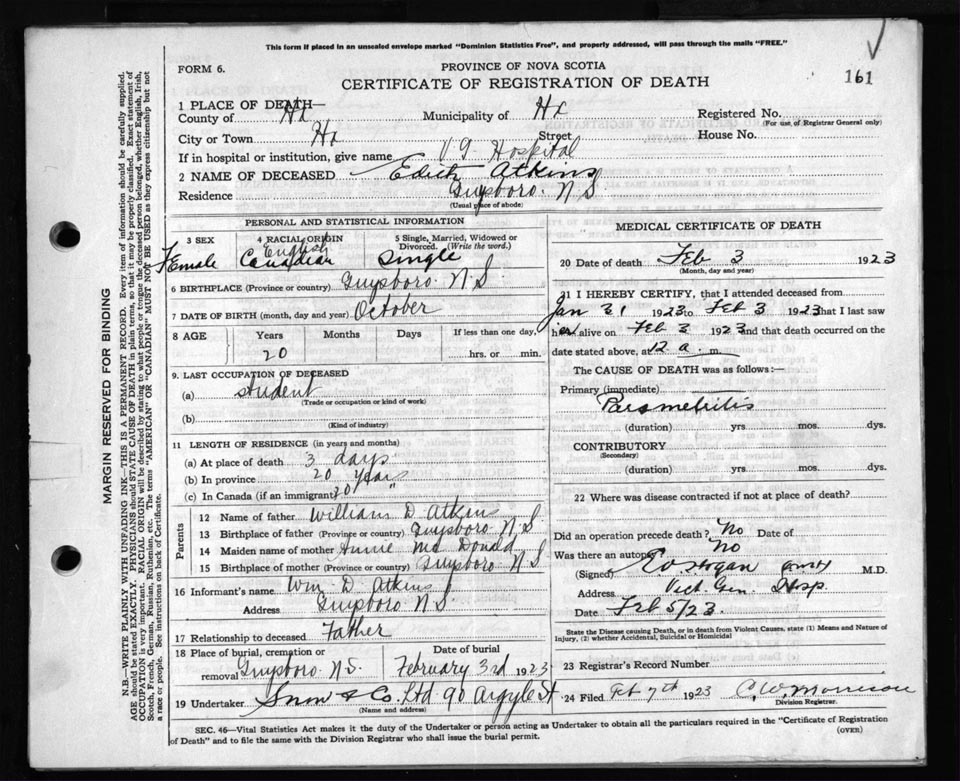 This form if placed in an unsealed envelope marked "Dominion Statistics Free", and properly addressed, will pass through the mails "FREE."
FORM 6.
PROVINCE OF NOVA SCOTIA
CERTIFICATE OF REGISTRATION OF DEATH
161
1 PLACE OF DEATH—
County of Hx Municipality of Hx Registered No.
(For use of Registrar General only)
City or Town Hx Street House No.
If in hospital or institution, give name V G Hospital
2 NAME OF DECEASED Edith Atkins
Residence Guysboro. N S
(Usual place of abode)
PERSONAL AND STATISTICAL INFORMATION
3 SEX 4 RACIAL ORIGIN 5 Single, Married, Widowed or Divorced. (Write the word.)
Female English Canadian Single
6 BIRTHPLACE (Province or country) Guysboro N S
7 DATE OF BIRTH (month, day and year) October
8 AGE Years Months Days If less than one day,
20 hrs. or min.
9. LAST OCCUPATION OF DECEASED
(a) Student
(Trade or occupation or kind of work)
(b)
(Kind of industry)
11 LENGTH OF RESIDENCE (in years and months)
(a) At place of death 3 days
(b) In province 20 years
(c) In Canada (if an immigrant) 20 "
Parents
12 Name of father William D. Atkins
13 Birthplace of father (Province or country) Guysboro N S
14 Maiden name of mother Annie Mc Donald
15 Birthplace of mother (Province or country) Guysboro N S
16 Informant's name Wm D Atkins
Address Guysboro N S.
17 Relationship to deceased Father
18 Place of burial, cremation or removal Guysboro N S. Date of burial February 3rd 1923
19 Undertaker Snow & Co. Ltd 90 Argyle St
(Name and address)
MEDICAL CERTIFICATE OF DEATH
20 Date of death Feb 3 1923
(Month, day and year)
21 I HEREBY CERTIFY, that I attended deceased from
Jan 31 1923 to Feb 3 1923 that I last saw
her alive on Feb 3 1923 and that death occurred on the
date stated above, at 12 a. m.
The CAUSE OF DEATH was as follows:—
Primary (immediate)
Parametritis
(duration) yrs mos. dys.
CONTRIBUTORY
(Secondary)
(duration) yrs. mos. dys.
22 Where was disease contracted if not at place of death?
Did an operation precede death? No Date of
Was there an autopsy No
(Signed) Hogan M.D.
Address Vict. Gen. Hosp.
Date Feb 5/23.
State the Disease causing Death, or in death from Violent Causes, state (1) Means and Nature of Injury, (2) whether Accidental, Suicidal or Homicidal
23 Registrar's Record Number
24 Filed Feb 7th 1923 C. W. Morrison
Division Registrar.
SEC. 46—Vital Statistics Act makes it the duty of the Undertaker or person acting as Undertaker to obtain all the particulars required in the "Certificate of Registration of Death" and to file the same with the Division Registrar who shall issue the burial permit.
(OVER)
MARGIN RESERVED FOR BINDING
N.B.—WRITE PLAINLY WITH UNFADING INK—THIS IS A PERMANENT RECORD. Every item of information should be carefully supplied.
AGE should be stated EXACTLY. PHYSICIANS should STATE CAUSE OF DEATH in plain terms, so that it may be properly classified. Exact statement of
OCCUPATION is very important. RACIAL ORIGIN will be described by stating to what people or tongue the deceased person belonged, whether English, Irish,
Scotch, French, German, Russian, Ruthenian, etc. The terms "AMERICAN" OR "CANADIAN" MUST NOT BE USED as they express citizenship but not
a race or people. See instructions on back of Certificate.